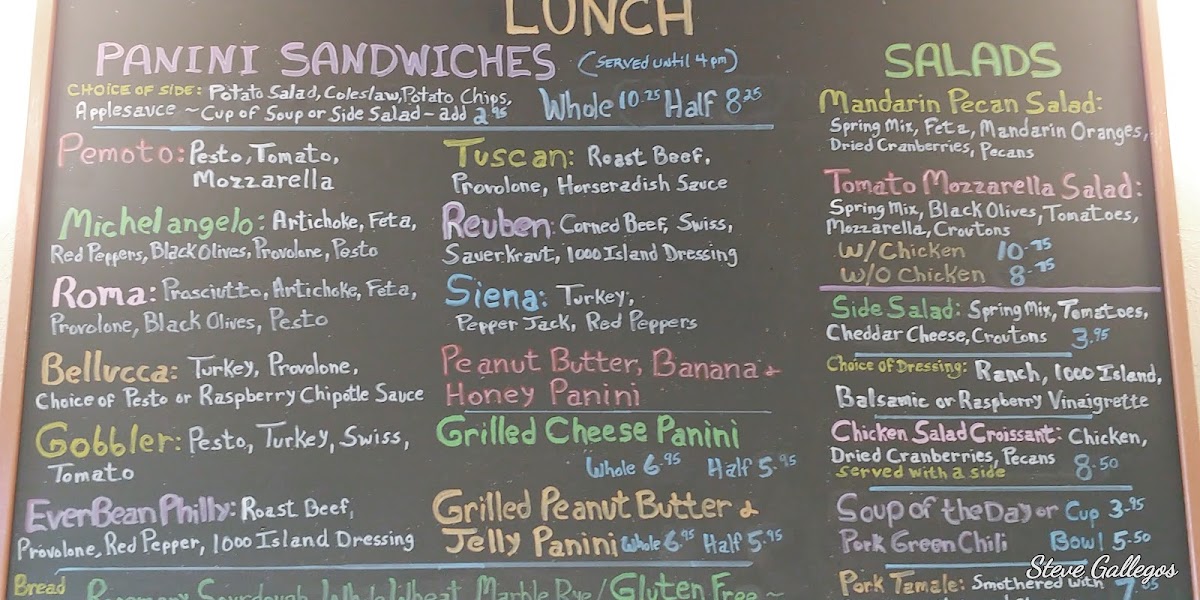 LUNCH
PANINI SANDWICHES (SERVED UNTIL 4 pm)
CHOICE OF SIDE: Potato Salad, Coleslaw, Potato Chips,
Applesauce ~ Cup of Soup or Side Salad - add 2.95
Whole 10.25 Half 8.25
Pemoto: Pesto, Tomato,
Mozzarella
Michelangelo: Artichoke, Feta,
Red Peppers, Black Olives, Provolone, Pesto
Roma: Prosciutto, Artichoke, Feta,
Provolone, Black Olives, Pesto
Bellucca: Turkey, Provolone,
Choice of Pesto or Raspberry Chipotle Sauce
Gobbler: Pesto, Turkey, Swiss,
Tomato
EverBean Philly: Roast Beef,
Provolone, Red Pepper, 1000 Island Dressing
Tuscan: Roast Beef,
Provolone, Horseradish Sauce
Reuben: Corned Beef, Swiss,
Sauerkraut, 1000 Island Dressing
Siena: Turkey,
Pepper Jack, Red Peppers
Peanut Butter, Banana &
Honey Panini
Grilled Cheese Panini
Whole 6.95 Half 5.95
Grilled Peanut Butter &
Jelly Panini Whole 6.95 Half 5.95
Bread Rosemary Sourdough Whole Wheat Marble Rye / Gluten Free ~
SALADS
Mandarin Pecan Salad:
Spring Mix, Feta, Mandarin Oranges,
Dried Cranberries, Pecans
Tomato Mozzarella Salad:
Spring Mix, Black Olives, Tomatoes,
Mozzarella, Croutons
W/Chicken 10.75
W/O Chicken 8.75
Side Salad: Spring Mix, Tomatoes,
Cheddar Cheese, Croutons 3.95
Choice of Dressing: Ranch, 1000 Island,
Balsamic or Raspberry Vinaigrette
Chicken Salad Croissant: Chicken,
Dried Cranberries, Pecans 8.50
served with a side
Soup of the Day or Cup 3.95
Pork Green Chili Bowl 5.50
Pork Tamale: Smothered with
Steve Gallegos